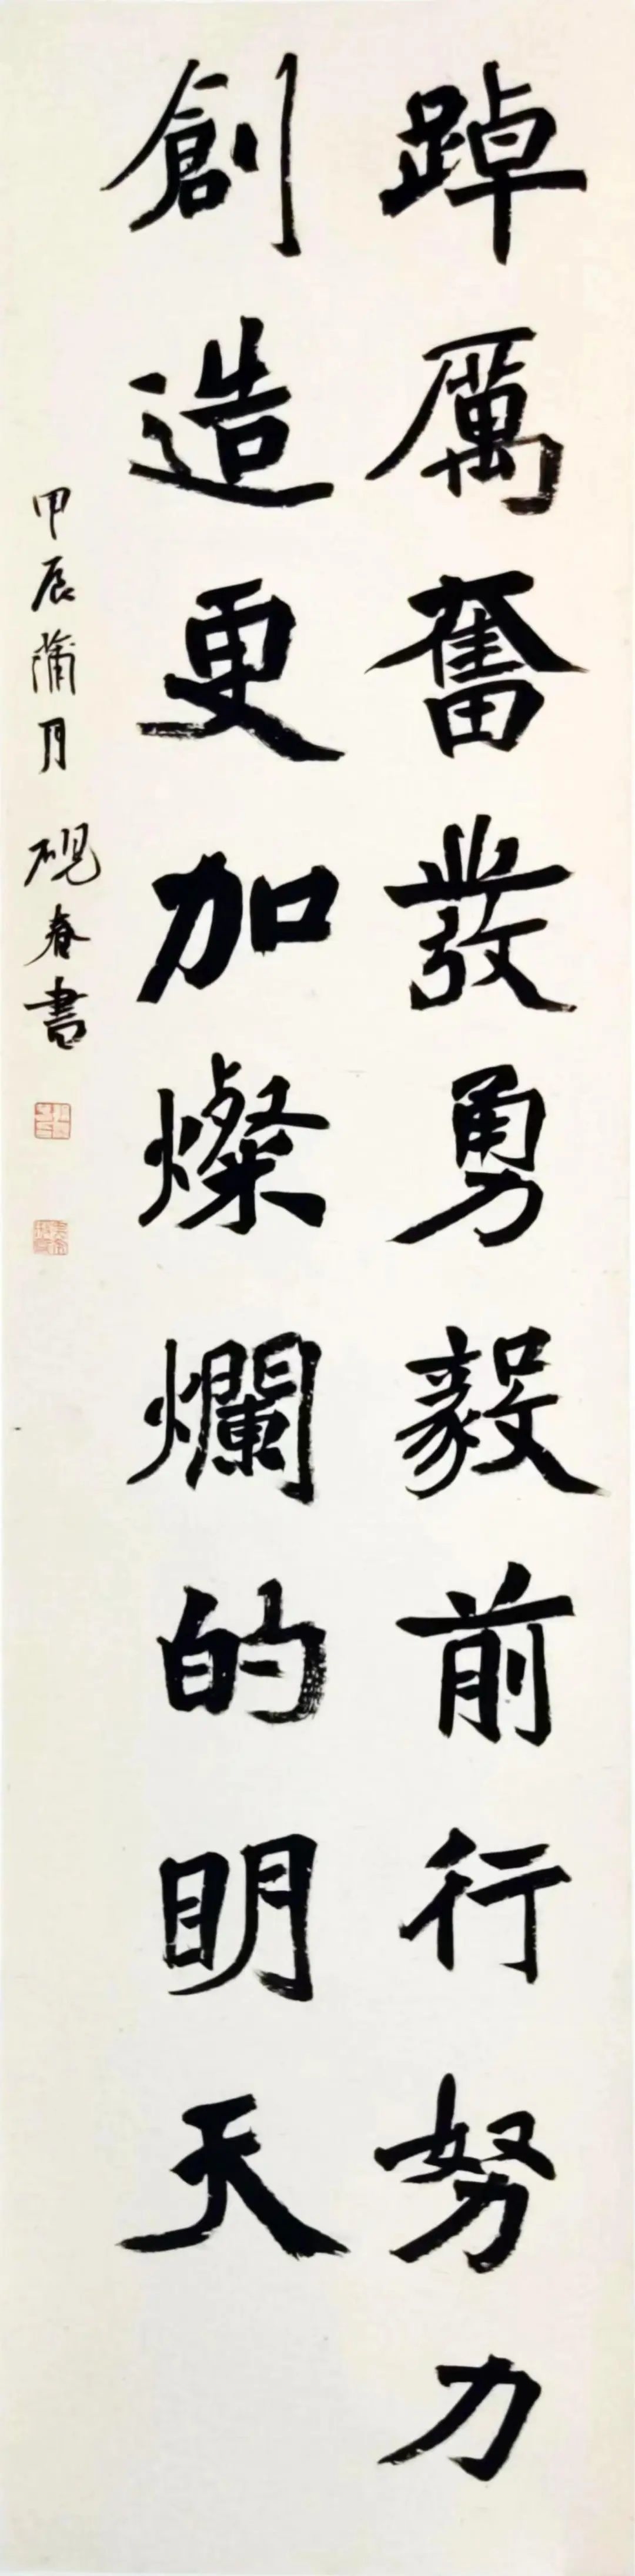 踔厲奮發勇毅前行努力
創造更加燦爛的明天
甲辰蒲月硯春書